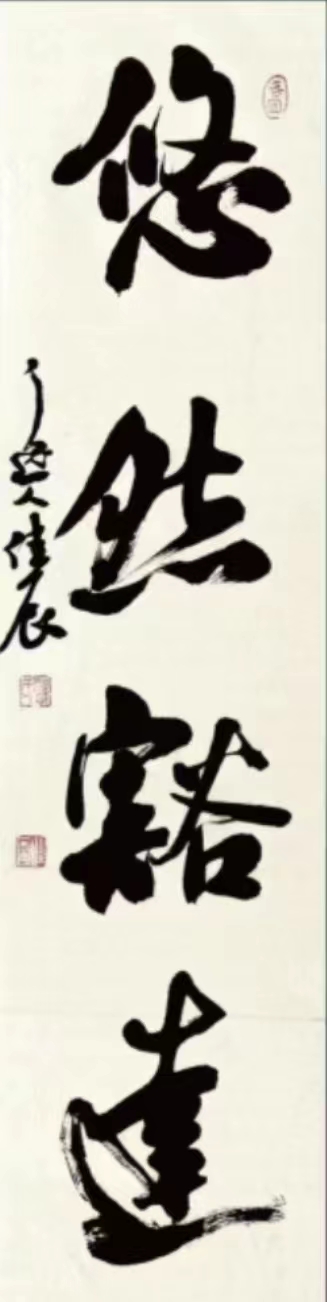 悠然豁達
人佳辰